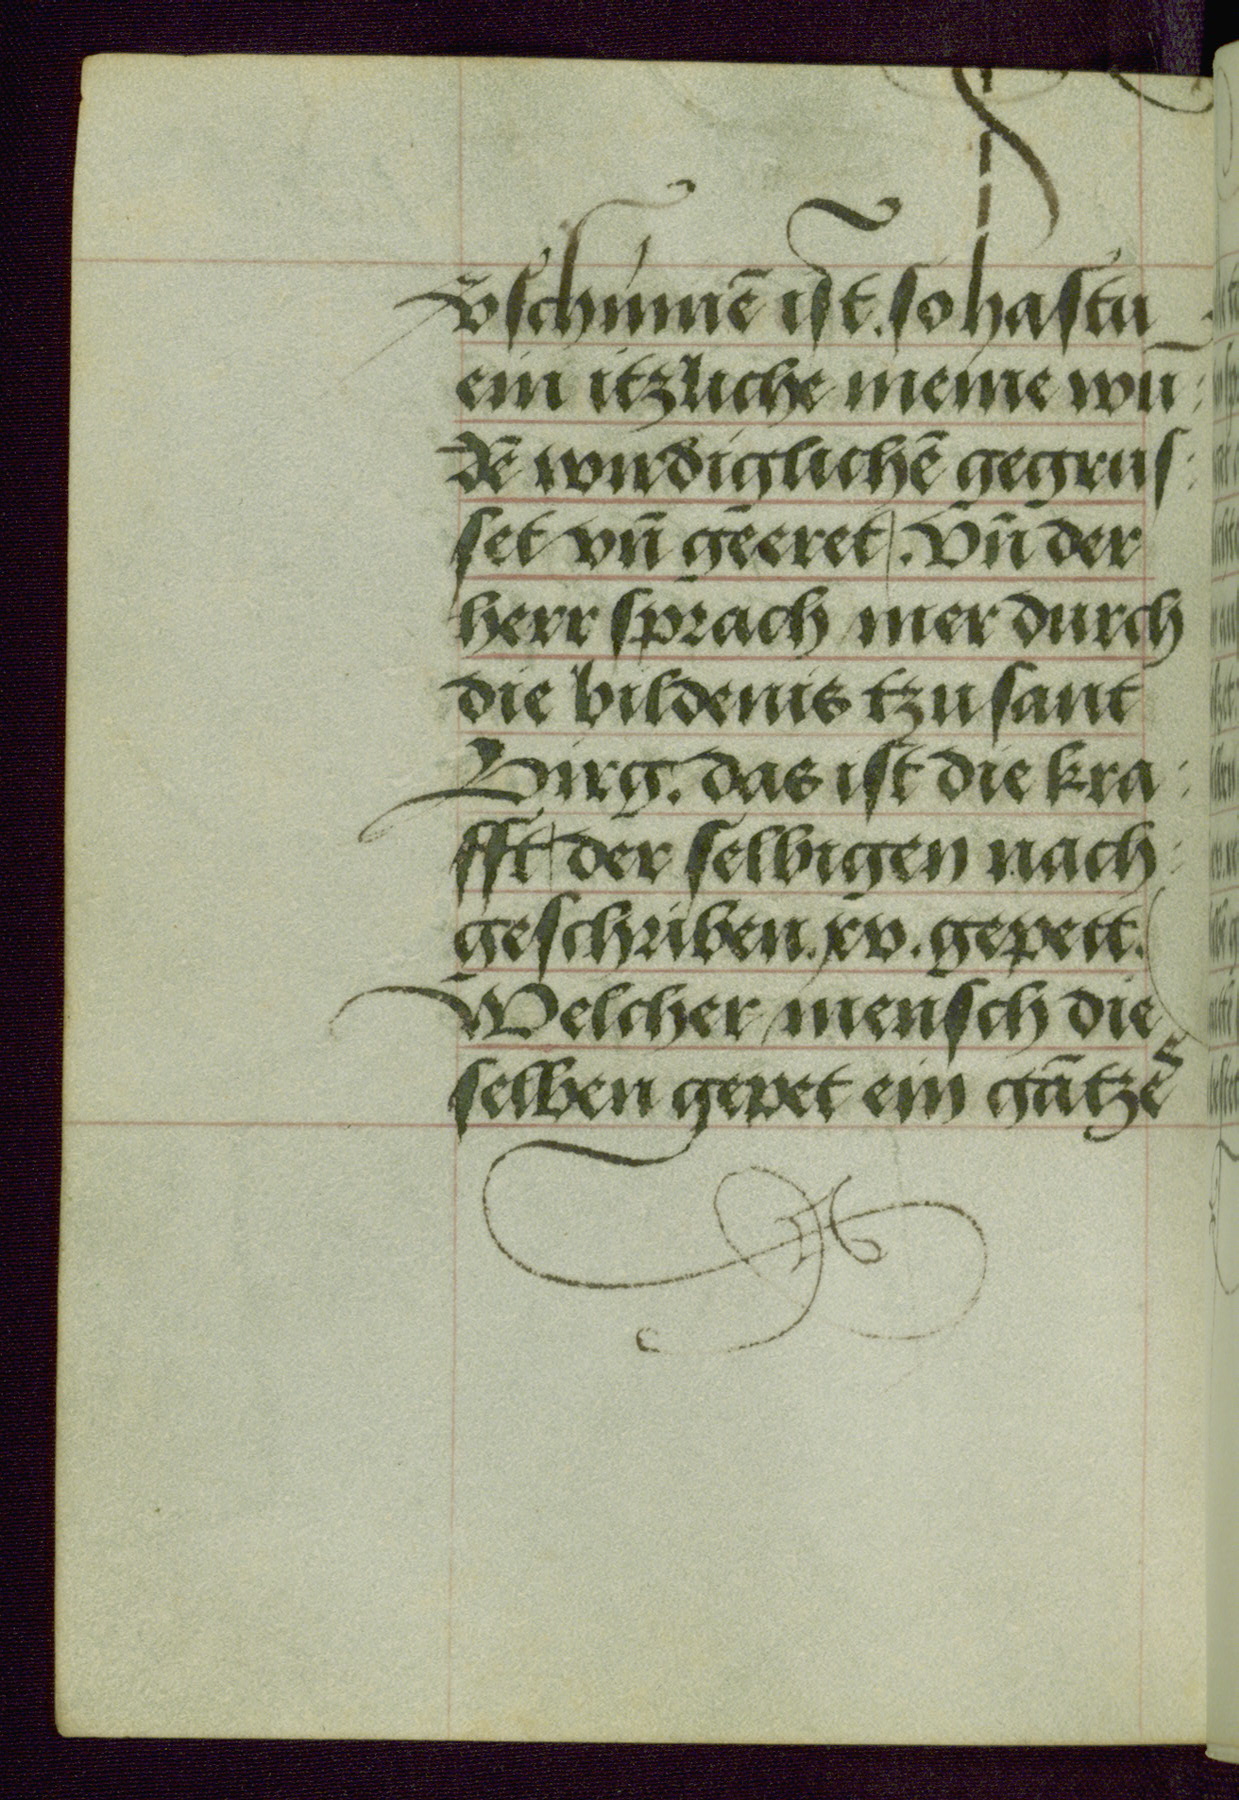 v̄schinnē ist. so hastu
ein itzliche meine wū:
dē wirdiglichē gegrus:
set vn̄ geeret. Vn̄ der
herr sprach mer durch
die bildenis tzu sant
Birg. das ist die kra:
fft der selbigen nach:
geschriben. xv. gepett.
Welcher mensch die
selben gepet ein gātzē